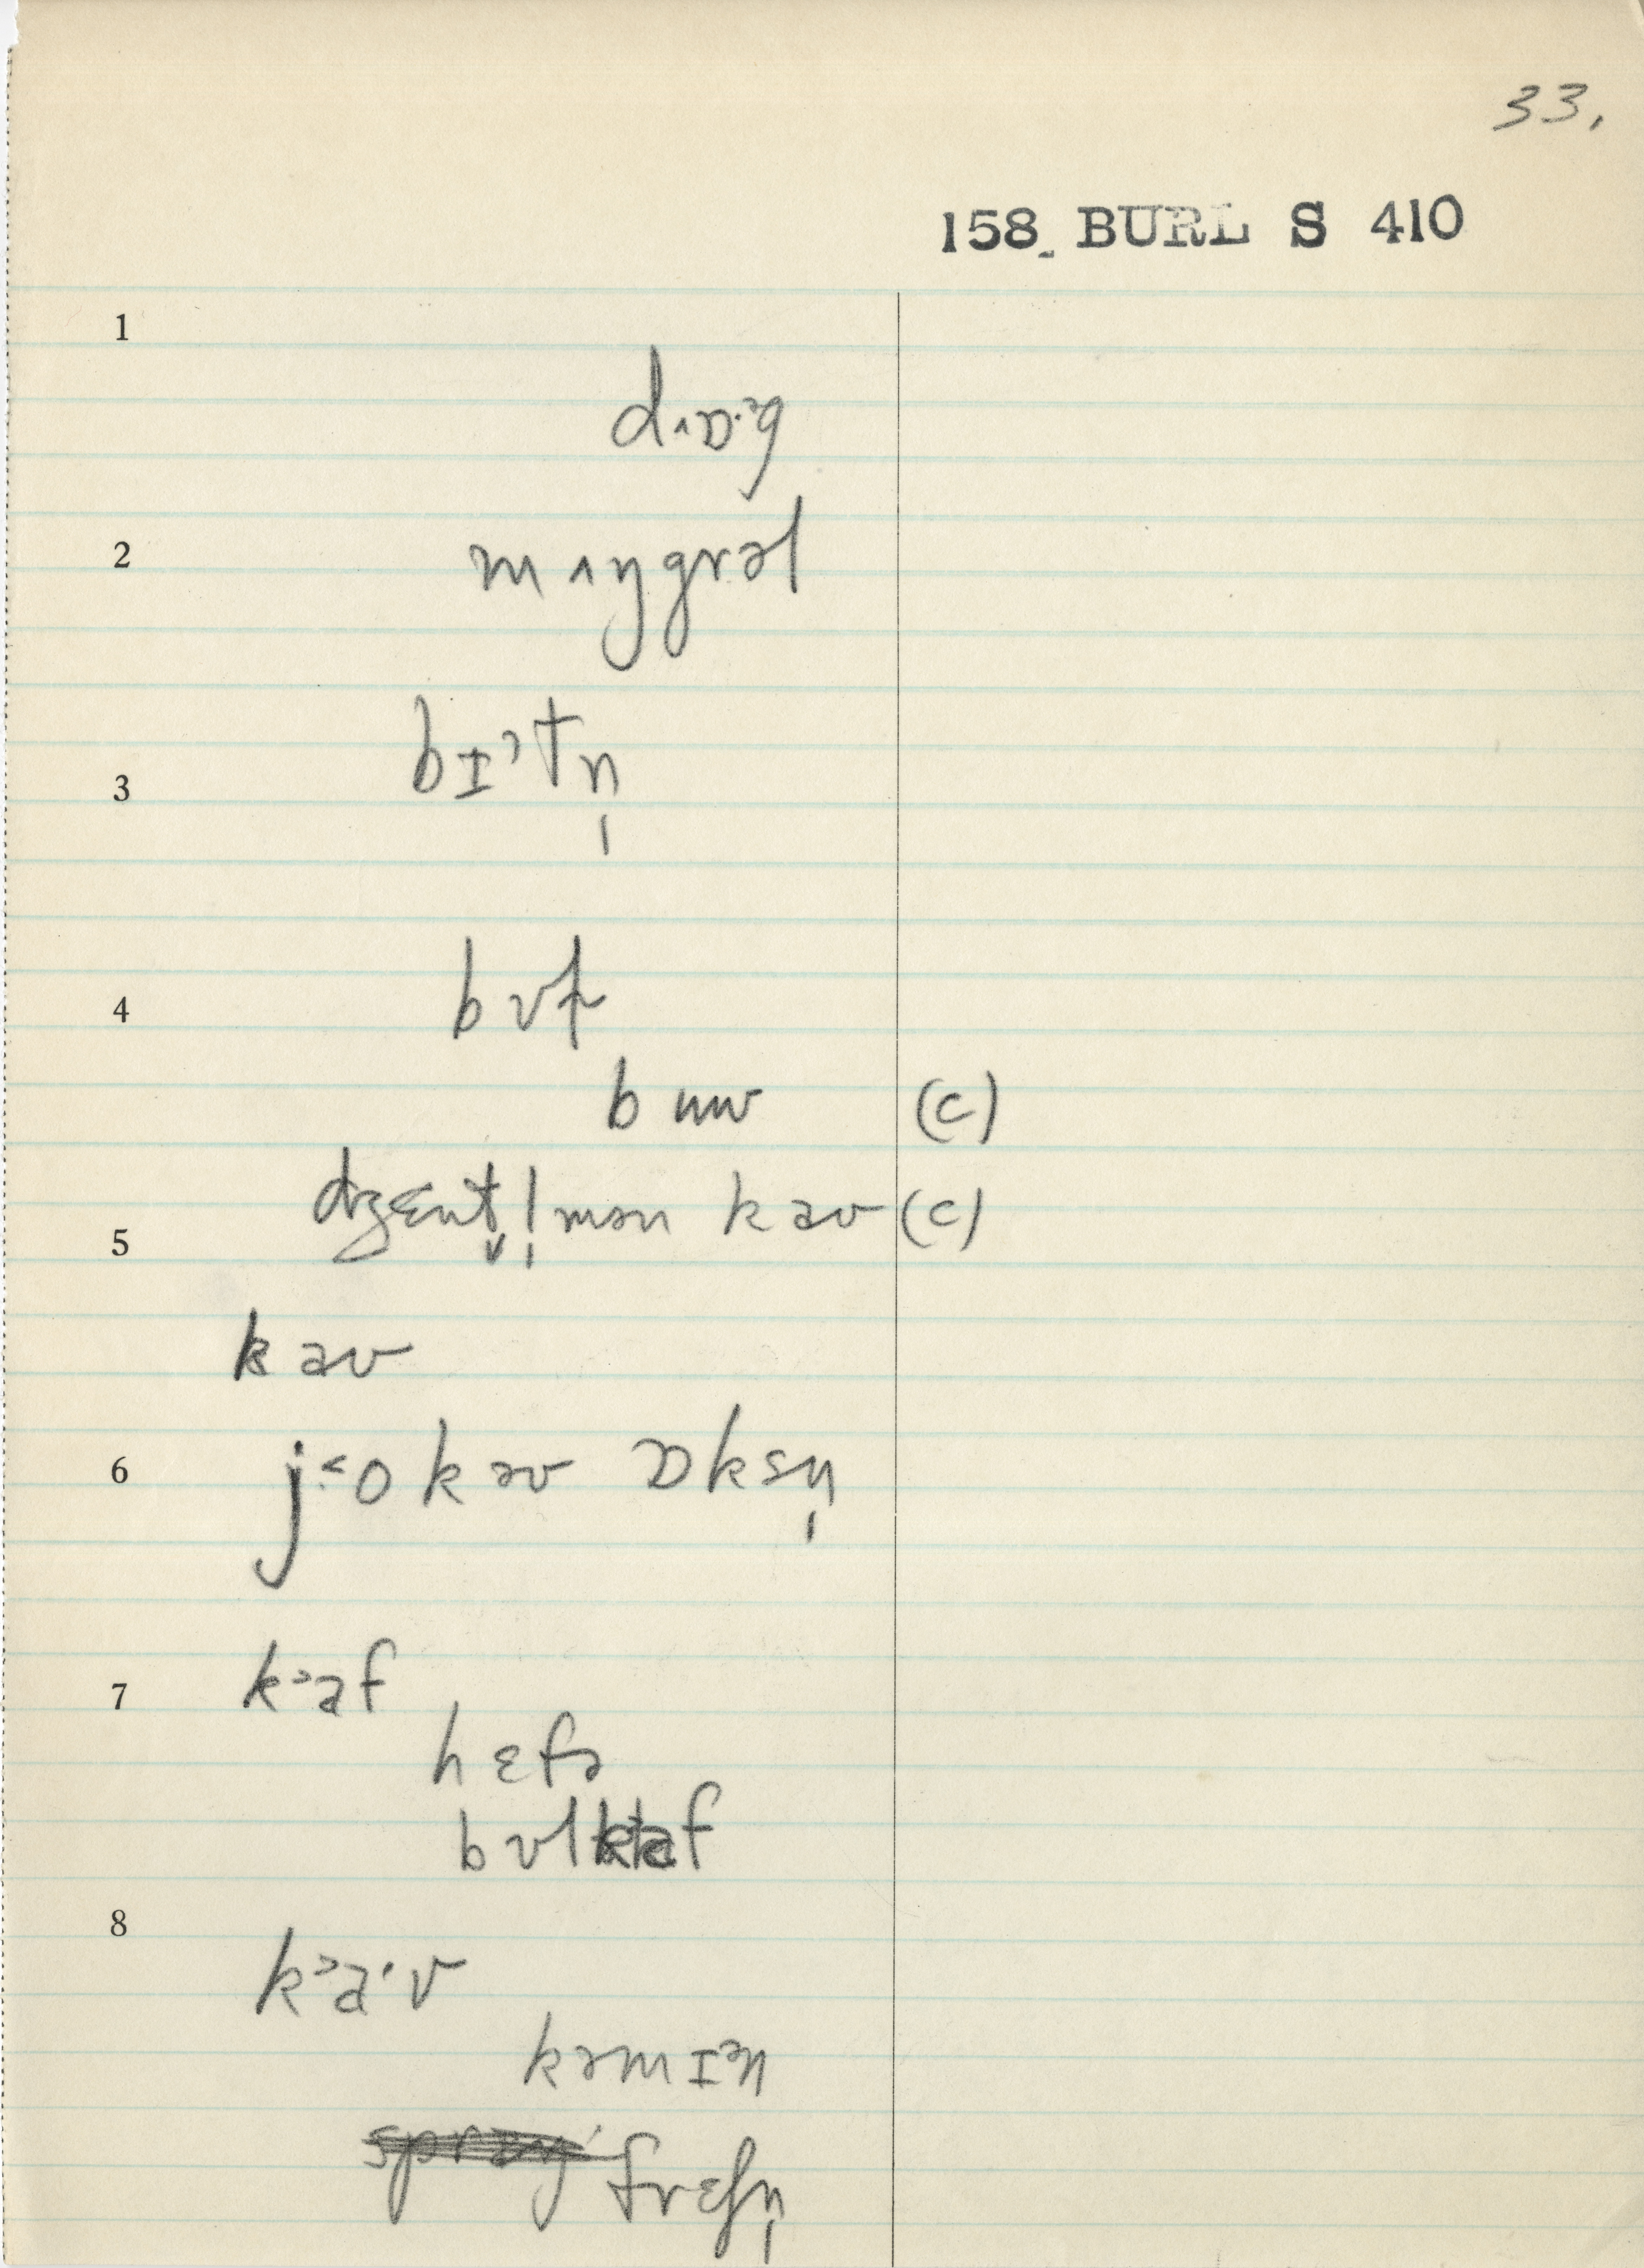 33.
158 BURL S 410
1
dʌɒ·g
2
mʌŋgrəl
3
bɪˀtn̩
4
bʊɫ
bʊʊ (c)
dʒɛnt̬l̩mən kaʊ (c)
5
kaʊ
6
j˂o kaʊ ɒksn̩
7
k˃af
hɛfə
bʊlkaf
8
k˃a·v
kəmɪən
frɛʃn̩